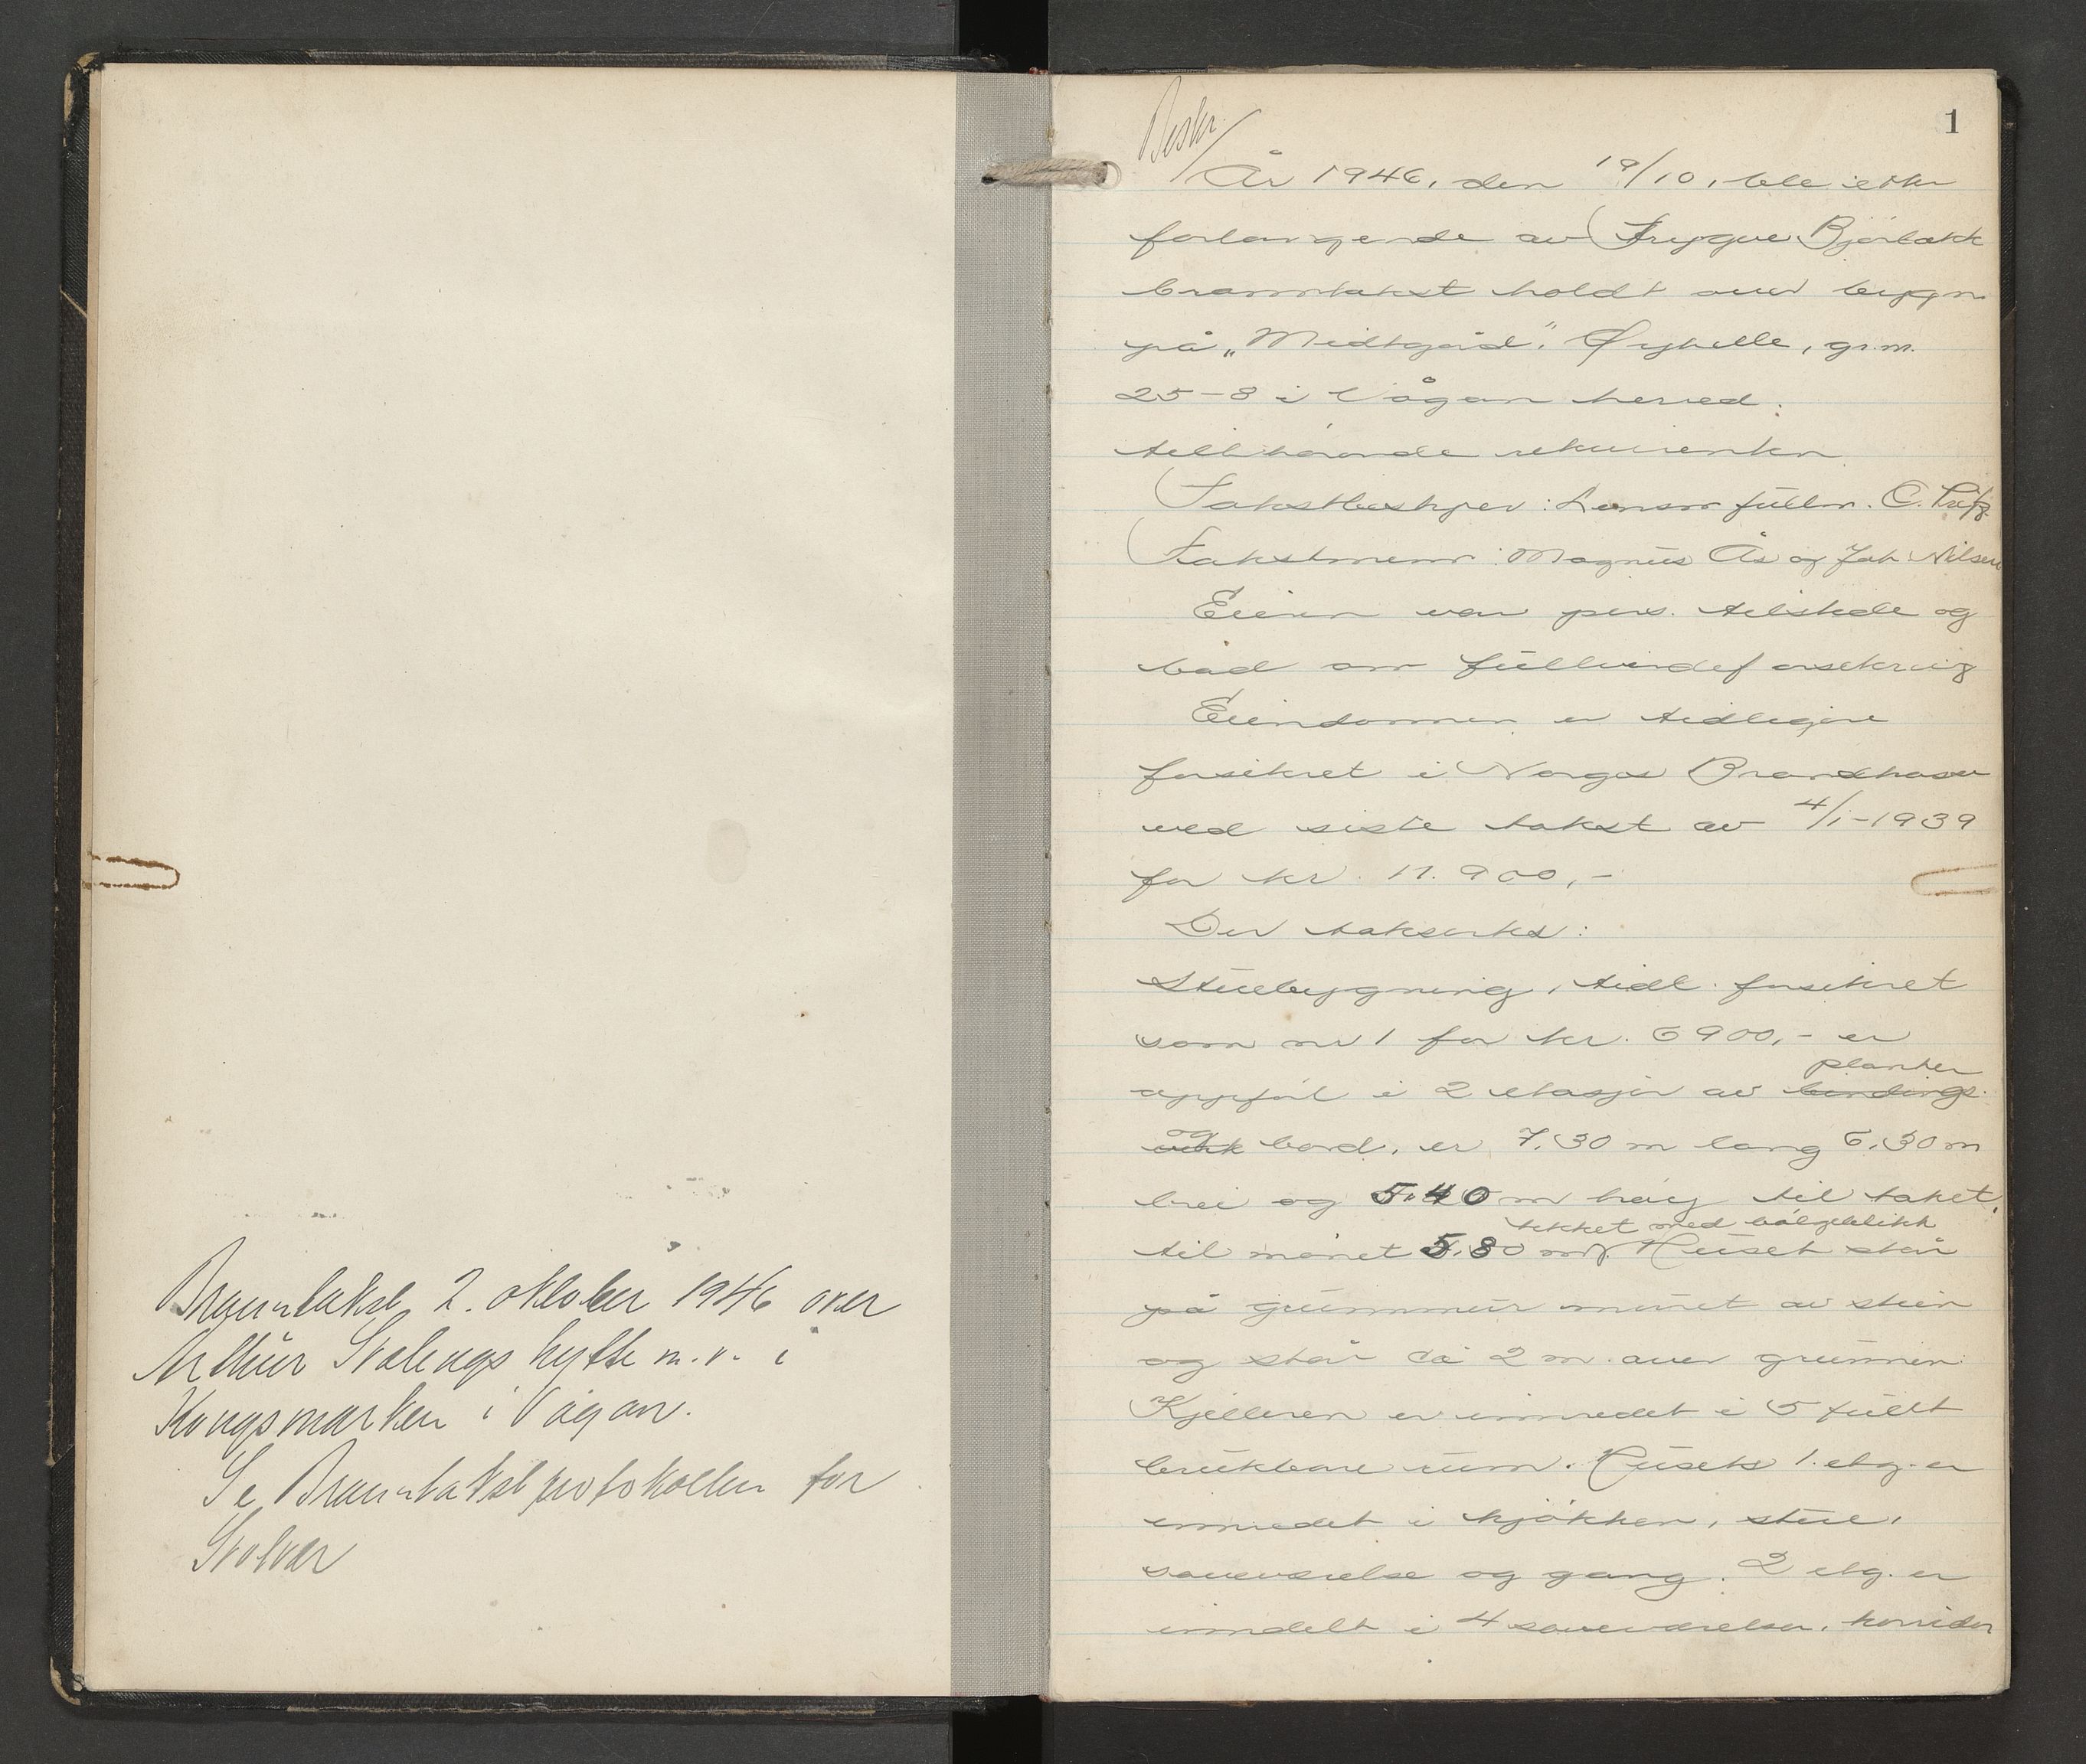 Branntakst 2. oktober 1946 over
Arthur Svolengs hytte m.v. i
Kongsmarken i Vågan.
Se Branntakstprotokollen for
Svolvær
1
Beskr.
År 1946, den 19/10, ble etter
forlangende av Trygve Bjørbækk
branntakst holdt over bygn.
på „Midtgård", Ørsnes, gr.nr.
25-8 i Vågan herred.
tilhørende rekvirenten
Takstbestyrer: Lensm fullm. C.
Takstmenn: Magnus Ås og Joh Nilsen
Eieren var pers. tilstede og
bad om fullverdiforsikring
Eiendommen er tidligere
forsikret i Norges Brandkasse
ved siste takst av 4/1-1939
for kr. 11.900,-
Der taksertes:
Stuebygning, tidl. forsikret
som nr 1 for kr. 6900,- er
planker
oppført i 2 etasjer av bindings-
og
verk bord, er 7.30 m lang 6.30 m
brei og 5.40 m høy til taket,
tekket med bølgeblikk
til mønet 5.80 m. Huset står
på grunnmur muret av stein
og står ca 2 m. over grunnen
Kjelleren er innredet i 5 fullt
brukbare rum. Husets 1. etg. er
innredet i kjøkken, stue,
soveværelse og gang. 2 etg. er
inndelt i 4 soveværelser, korridor